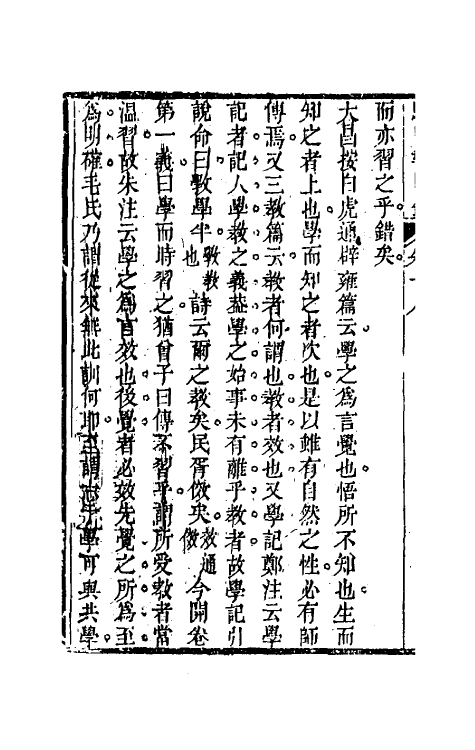 而亦習之乎錯矣
大昌按白虎通辟雍篇云學之為言覺也悟所不知也生而
知之者上也學而知之者次也是以雖有自然之性必有師
傅焉又三教篇云教者何謂也教者效也又學記鄭注云學
記者記人學教之義葢學之始事未有離乎教者故學記引
說命曰教學半教敎也詩云爾之教矣民胥傚矣傚效通今開卷
第一義曰學而時習之猶曾子曰傳不習乎謂所受教者當
温習故朱注云學之為言效也後覺者必效先覺之所為至
為明確毛氏乃謂從來無此訓何耶至謂志於學可與共學